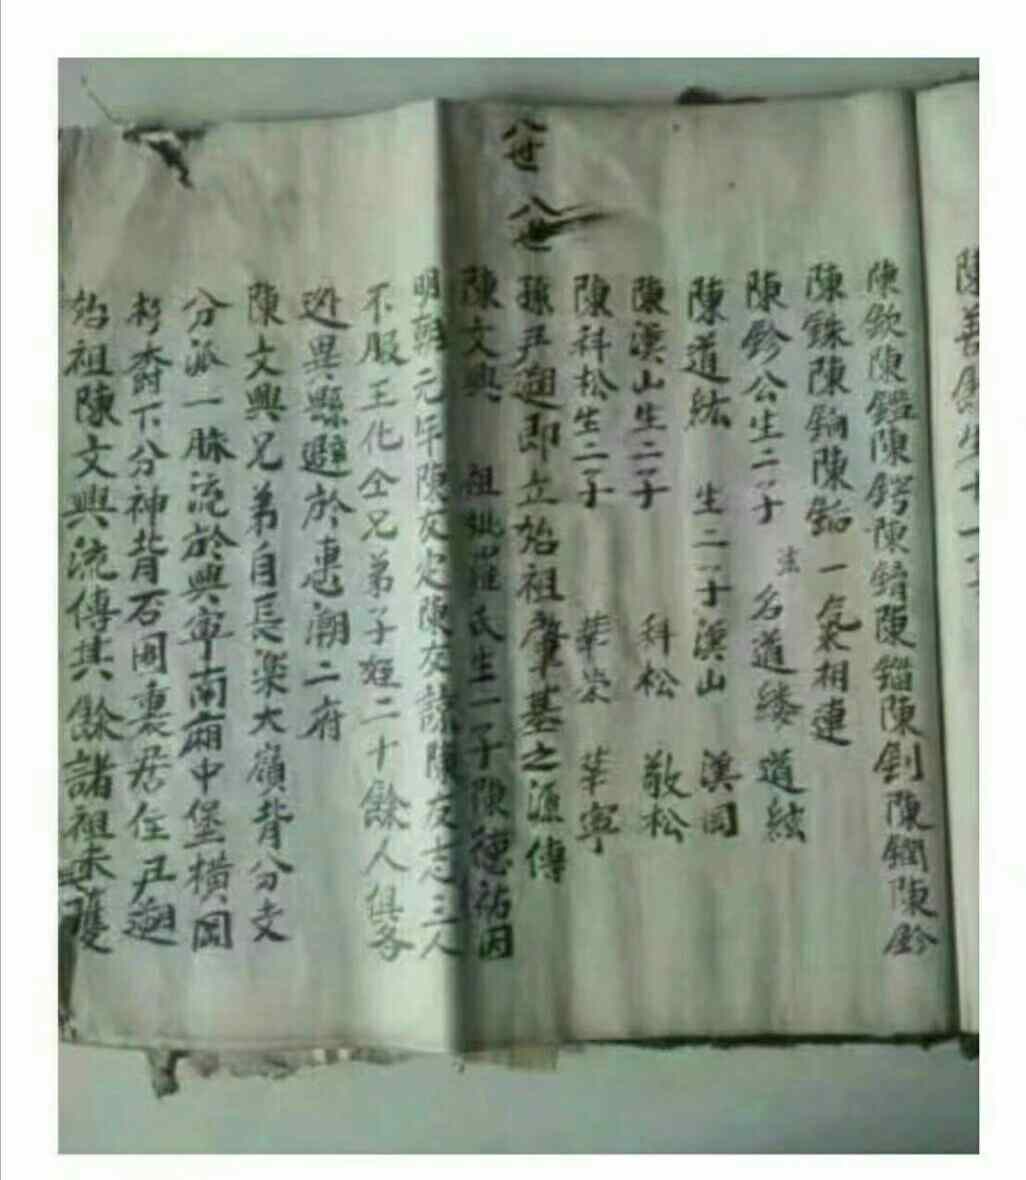 陳善
陳欽陳鑑陳鍔陳錆陳錙陳釗陳鐦陳鈐
陳銖陳錀陳銛一氣相連
陳鈐公生二子 名道縷 道絃
陳道紘 生二子漢山 漢岡
陳漢山生二子 科松 敬松
陳科松生二子 華荣 華寧
八世 八世
孫尹迴即立始祖肇基之源傳
陳文興 祖妣羅氏生一子陳德祐因
明朝元年陳友定陳友諒陳友志三人
不服王化仝兄弟子姪二十餘人俱各
迯異縣避於惠潮二府
陳文興兄弟自長樂大嶺背分支
分派一脉流於興寧南廂中堡橫岡
下分神背石圍裏居住尹迴
始祖陳文興流傳其餘諸祖未獲